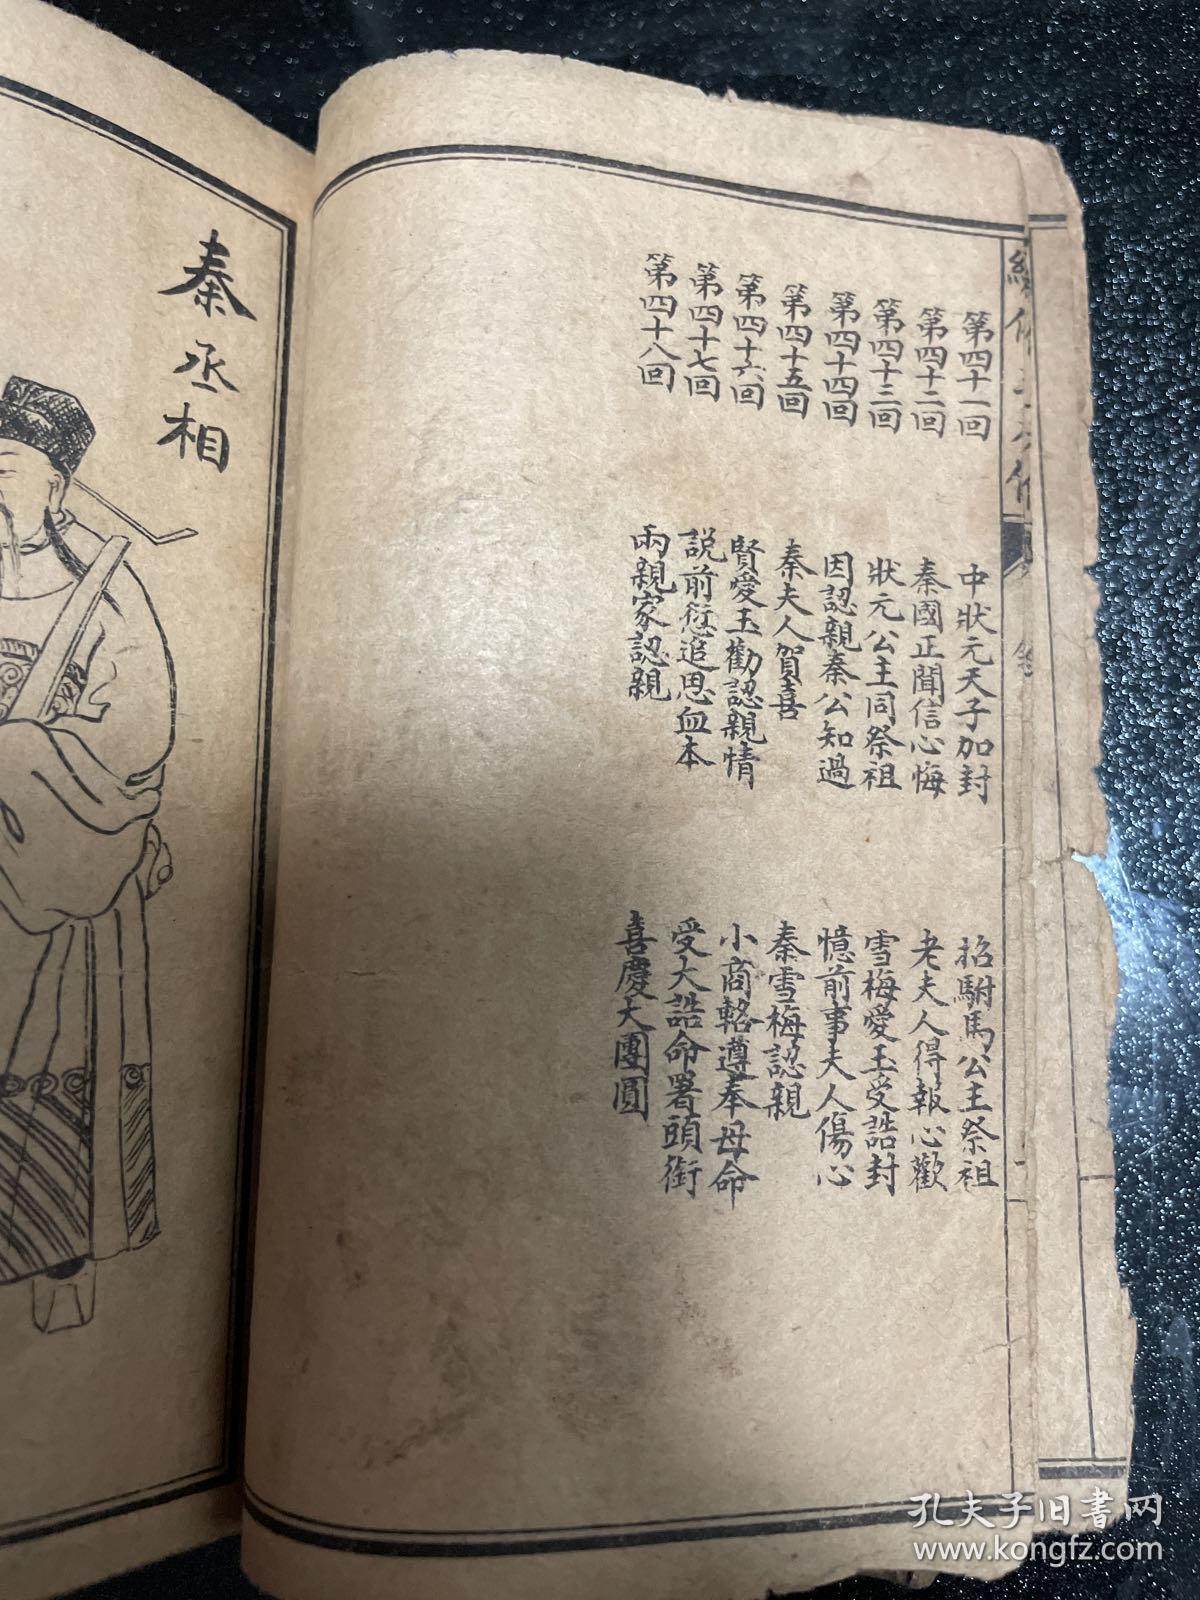 第四十一回 中狀元天子加封 招駙馬公主祭祖
第四十二回 秦國正聞信心悔 老夫人得報心歡
第四十三回 狀元公主同祭祖 雪梅愛玉受誥封
第四十四回 因認親秦公知過 憶前事夫人傷心
第四十五回 秦夫人賀喜 秦雪梅認親
第四十六回 賢愛玉勸認親情 小商輅遵奉母命
第四十七回 説前愆追思血本 受大誥命署頭銜
第四十八回 兩親家認親 喜慶大團圓
秦丞相
孔夫子旧书网
www.kongfz.com